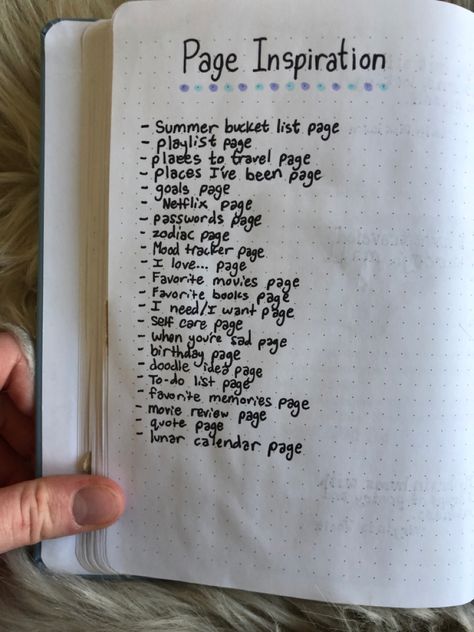 Page Inspiration
- Summer bucket list page
- playlist page
- places to travel page
- places I've been page
- goals page
- Netflix page
- passwords page
- zodiac page
- Mood tracker page
- I love... page
- Favorite movies page
- Favorite books page
- I need/I want page
- Self care page
- when you're sad page
- birthday page
- doodle idea page
- To-do list page
- favorite memories page
- movie review page
- quote page
- lunar calendar page